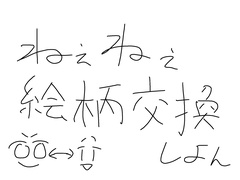 ねぇねぇ
絵柄交換
しよん